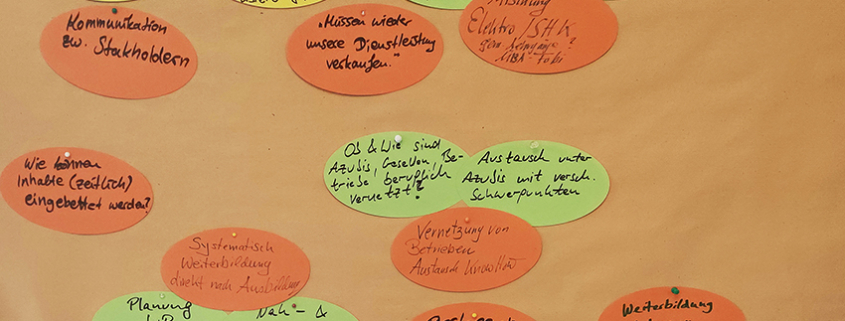 Kommunikation
zw. Stakholdern
"Müssen wieder
unsere Dienstleistung
verkaufen."
Mischung
Elektro/SHK
MBA-Fobi
Wie können
Inhalte (zeitlich)
eingebettet werden?
Ob & Wie sind
Azubis, Gesellen, Be-
triebe beruflich
vernetzt?
Austausch unter
Azubis mit versch.
Schwerpunkten
Vernetzung von
Betrieben
Austausch KnowHow
Systematisch
Weiterbildung
direkt nach Ausbildung
Planung
Nah- &
Weiterbildung